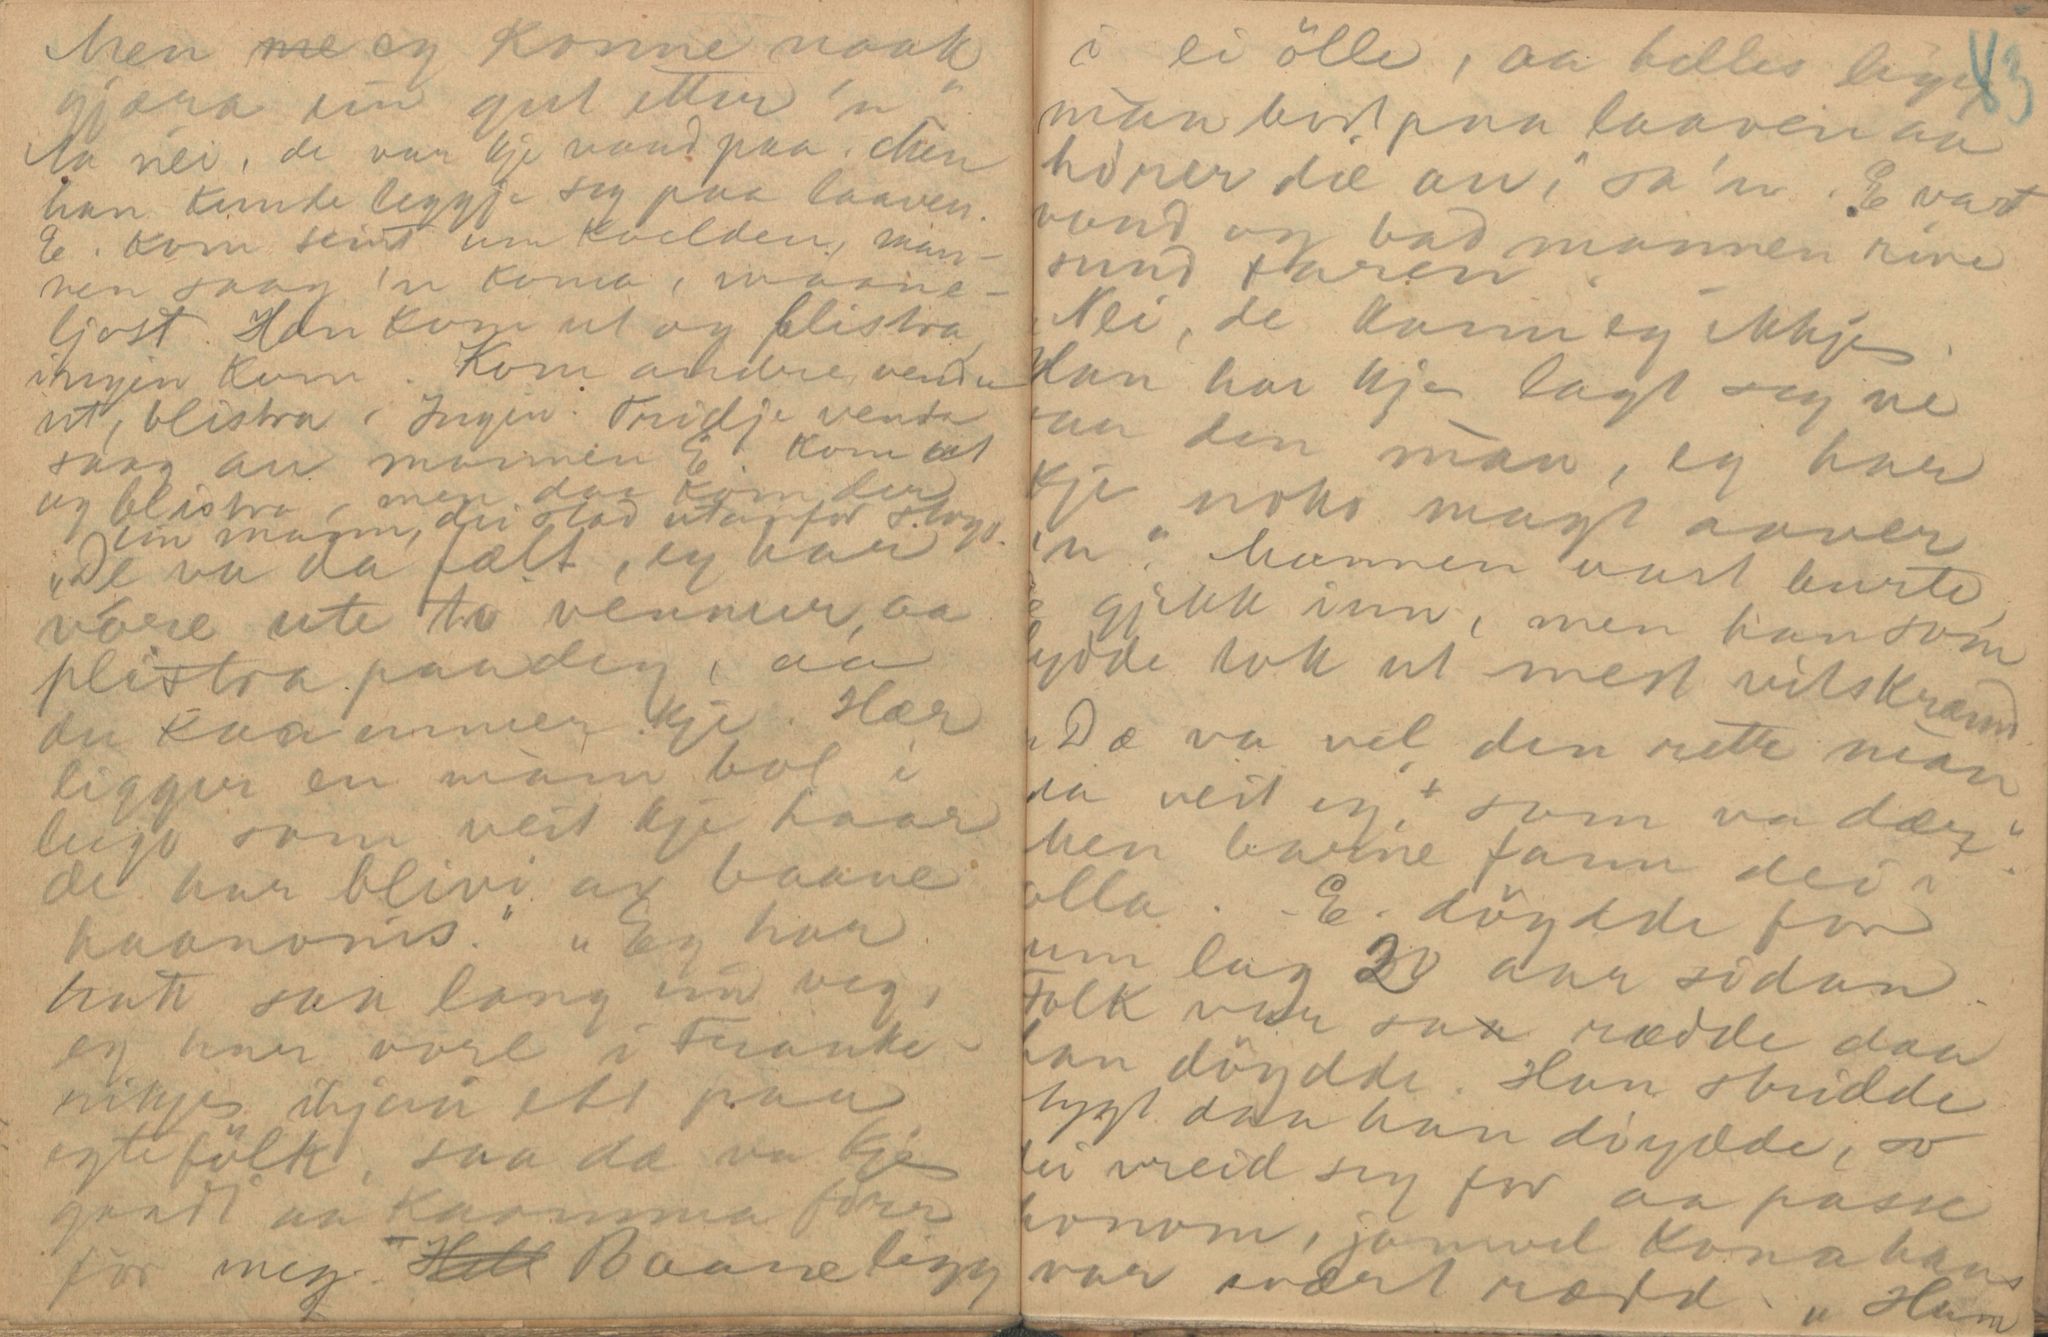 Men me eg konne naak
gjæra ein gut etter 'n"
Aa nei, de var kje vand paa. Men
han kunde leggje seg paa laaven.
E. kom seint um kvelden, man-
nen saag 'n koma, maane-
ljost. Han kom ut og blistra,
ingin kom. Kom andre venda
ut, blistra, Ingin. Tridje venda
saag au mannen E. kom ut
og blistra, men daa kom der
ein mann, dei stod utanfor stogo.
"De va da fælt, eg har
være ute to vennur, aa
plistra paa deg, aa
du kaammer kje. Hær
ligger en mann bol i
hugo som veit kje haar
de har blivi av baane
haanoms." "Eg har
hatt saa lang ein veg,
eg har vore i Franke-
rikje ihjaa ett paa
egtefölk, saa dæ va kje
goudt aa kaamma förer
for meg. Hell Baane ligg
i ei ölle, aa helles ligg 83
mãn bort paa laaven aa
hörer die au," sa'n. E vart
vond og bad mannen rive
sund karen.
Nei, de kann eg ikkje.
Han har kje lagt seg ne
saa den mãn, eg har
kje noko magt aaver
'n." Mannen vart burte,
E gjekk inn, men han som
lydde tok ut mest vitskræmd.
"Dæ va vel den rette mãn
da veit eg, som va dær".
Men barne fann dei i
olla. E. döydde for
um lag 20 aar sidan.
Folk var saa rædde daa
han döydde. Han stridde
stygt daa han döydde, so
dei vreid seg for aa passe
honom, jamvel kona hans
var svært rædd. "Han